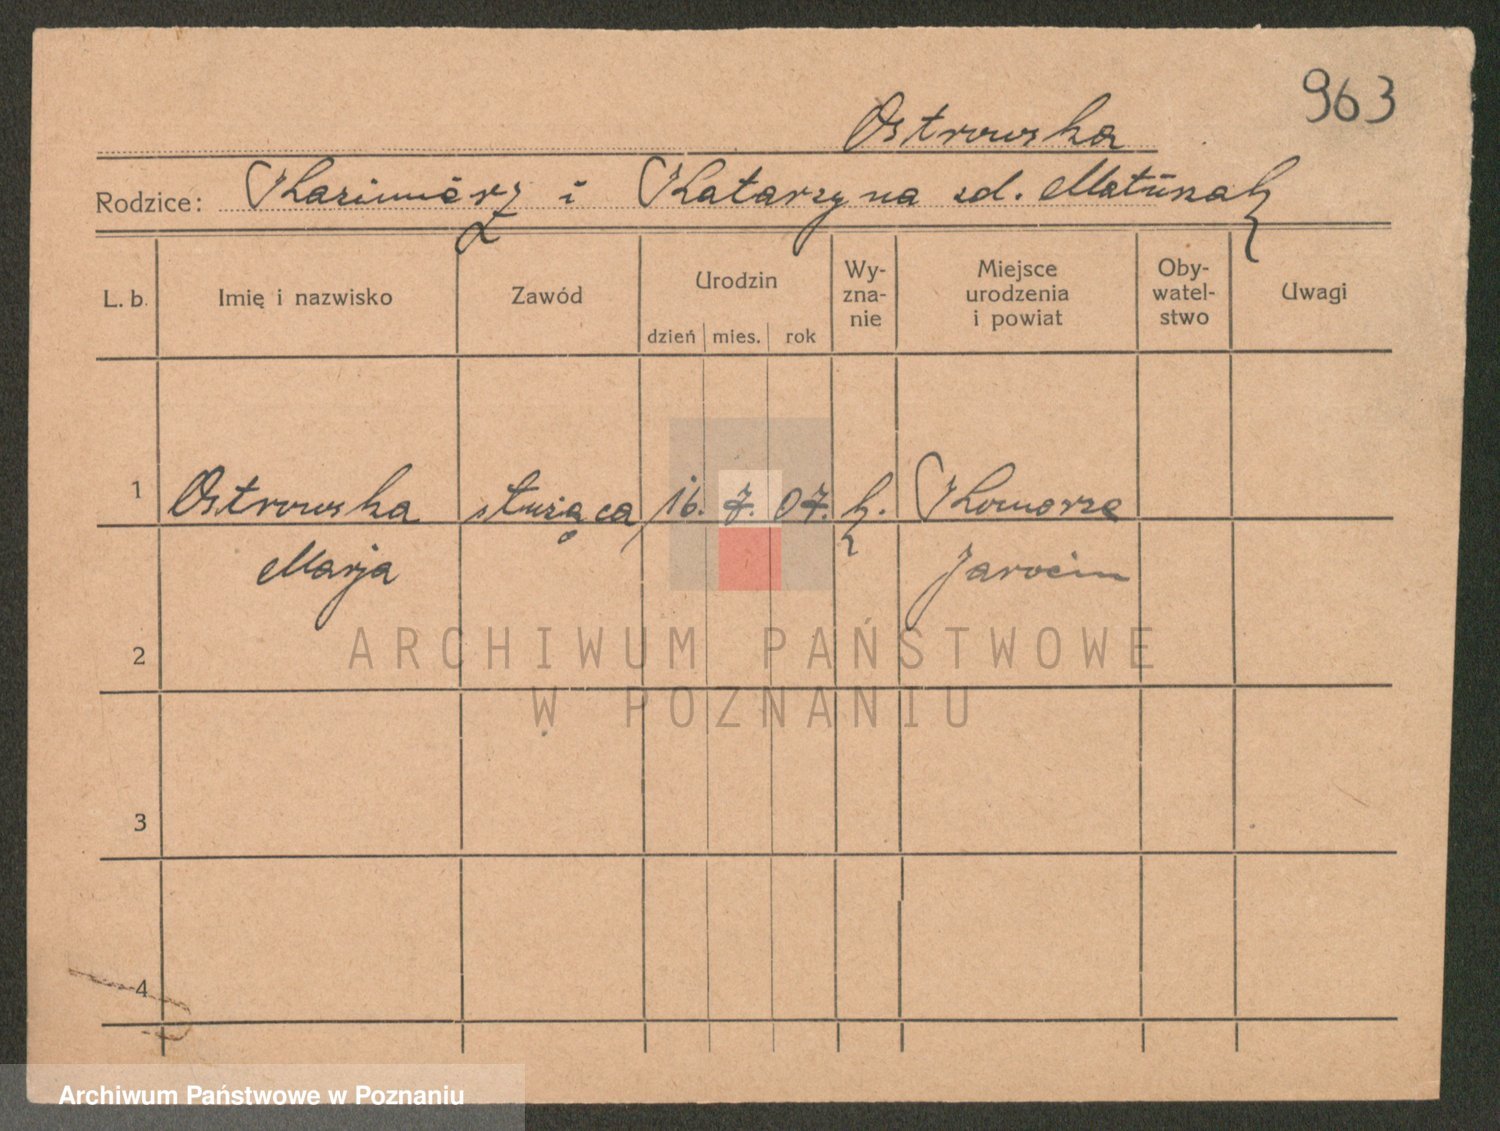 963
Ostrowska
Rodzice: Kazimierz i Katarzyna zd. Matuszak
L. b. Imię i nazwisko Zawód Urodzin dzień mies. rok Wy-zna-nie Miejsce urodzenia i powiat Oby-watel-stwo Uwagi
1 Ostrowska służąca 16. 7. 07. k. Komorze
Marja Jarocin
2
ARCHIWUM PAŃSTWOWE
W POZNANIU
3
4
Archiwum Państwowe w Poznaniu